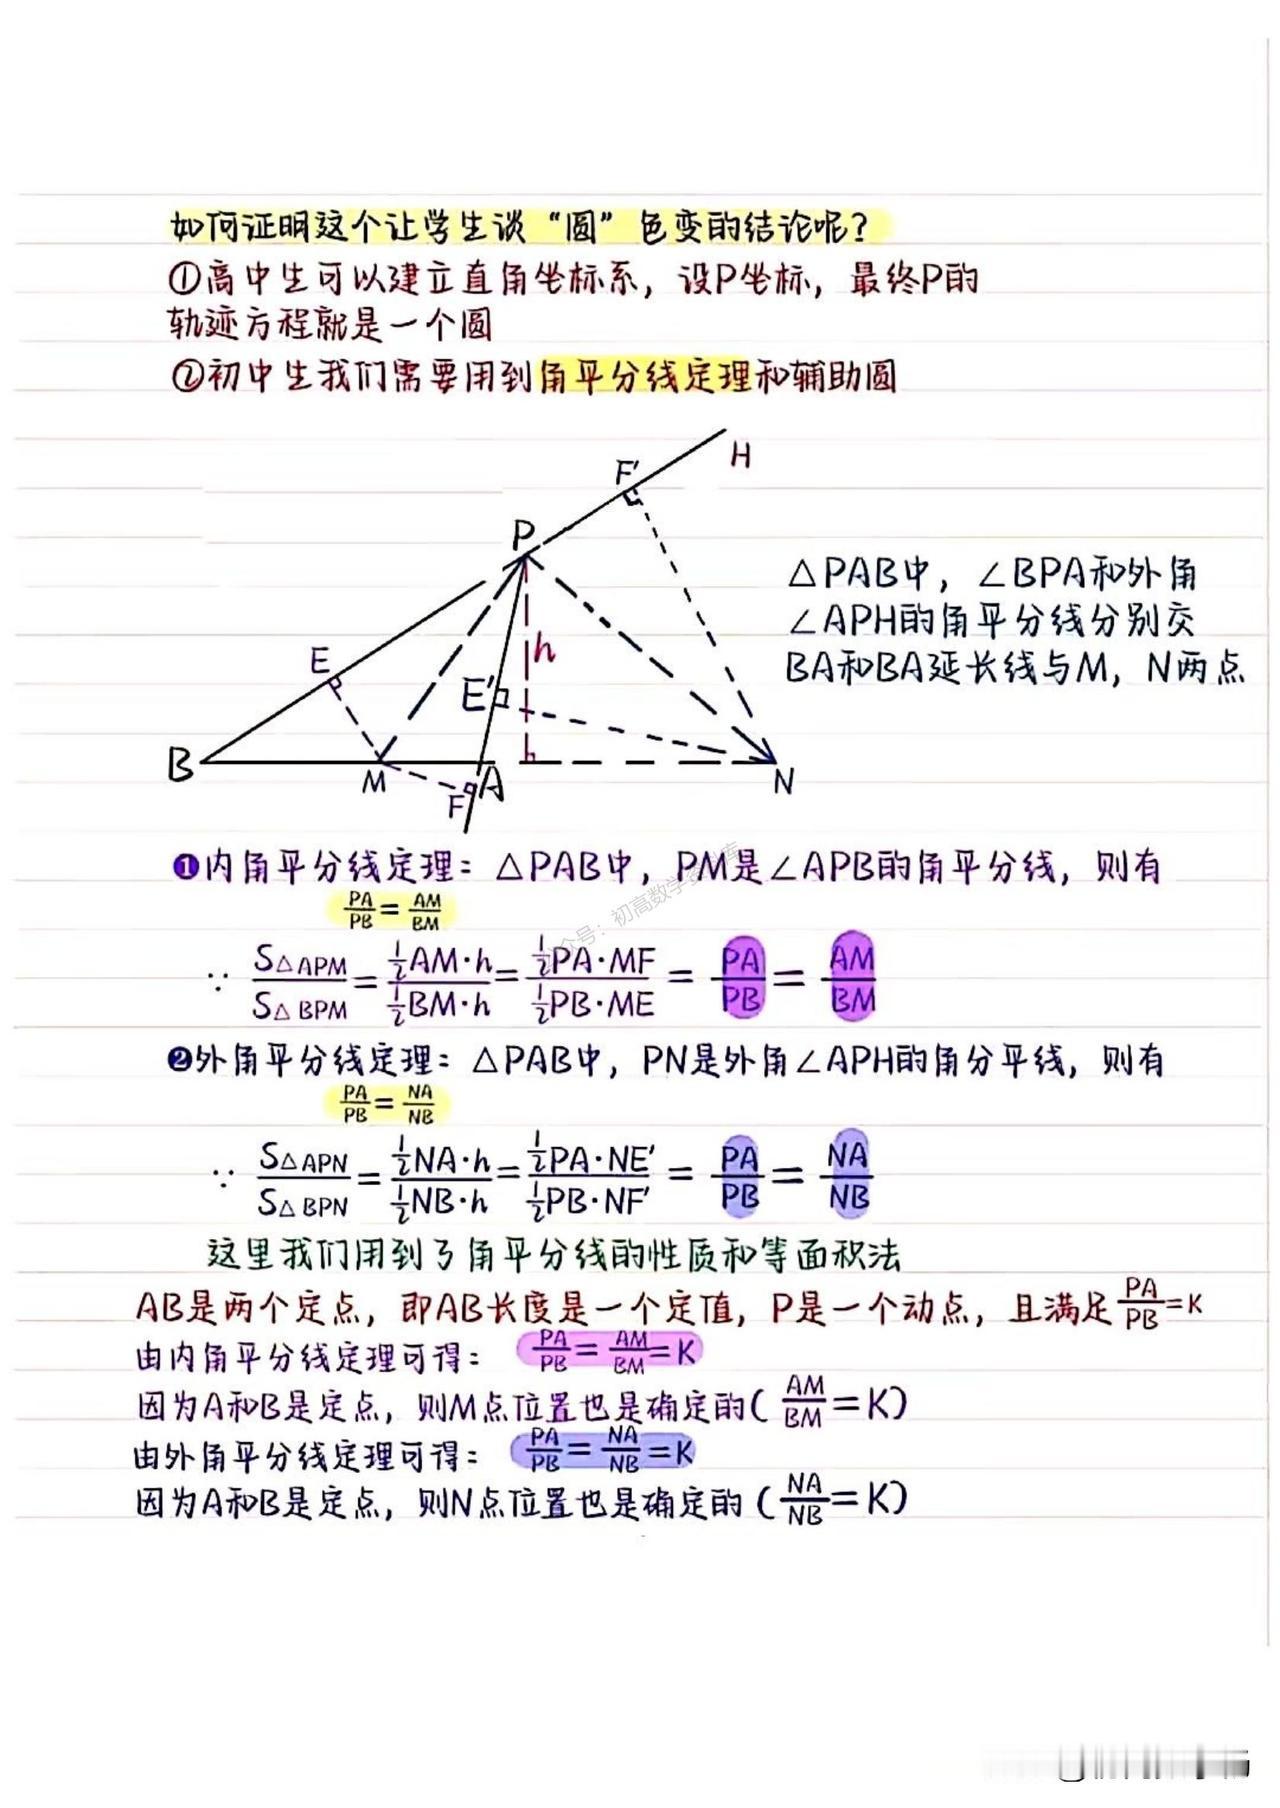 如何证明这个让学生谈“圆”色变的结论呢?
①高中生可以建立直角坐标系，设P坐标，最终P的
轨迹方程就是一个圆
②初中生我们需要用到角平分线定理和辅助圆
H
F'
P
h
E
E'
B
M
F
A
N
△PAB中，∠BPA和外角
∠APH的角平分线分别交
BA和BA延长线与M，N两点
❶内角平分线定理：△PAB中，PM是∠APB的角平分线，则有
PA/PB = AM/BM
∵ S△APM/S△BPM = ½AM·h/½BM·h = ½PA·MF/½PB·ME = PA/PB = AM/BM
❷外角平分线定理：△PAB中，PN是外角∠APH的角分平线，则有
PA/PB = NA/NB
∵ S△APN/S△BPN = ½NA·h/½NB·h = ½PA·NE'/½PB·NF' = PA/PB = NA/NB
这里我们用到了角平分线的性质和等面积法
AB是两个定点，即AB长度是一个定值，P是一个动点，且满足PA/PB=K
由内角平分线定理可得：PA/PB = AM/BM = K
因为A和B是定点，则M点位置也是确定的(AM/BM=K)
由外角平分线定理可得：PA/PB = NA/NB = K
因为A和B是定点，则N点位置也是确定的(NA/NB=K)